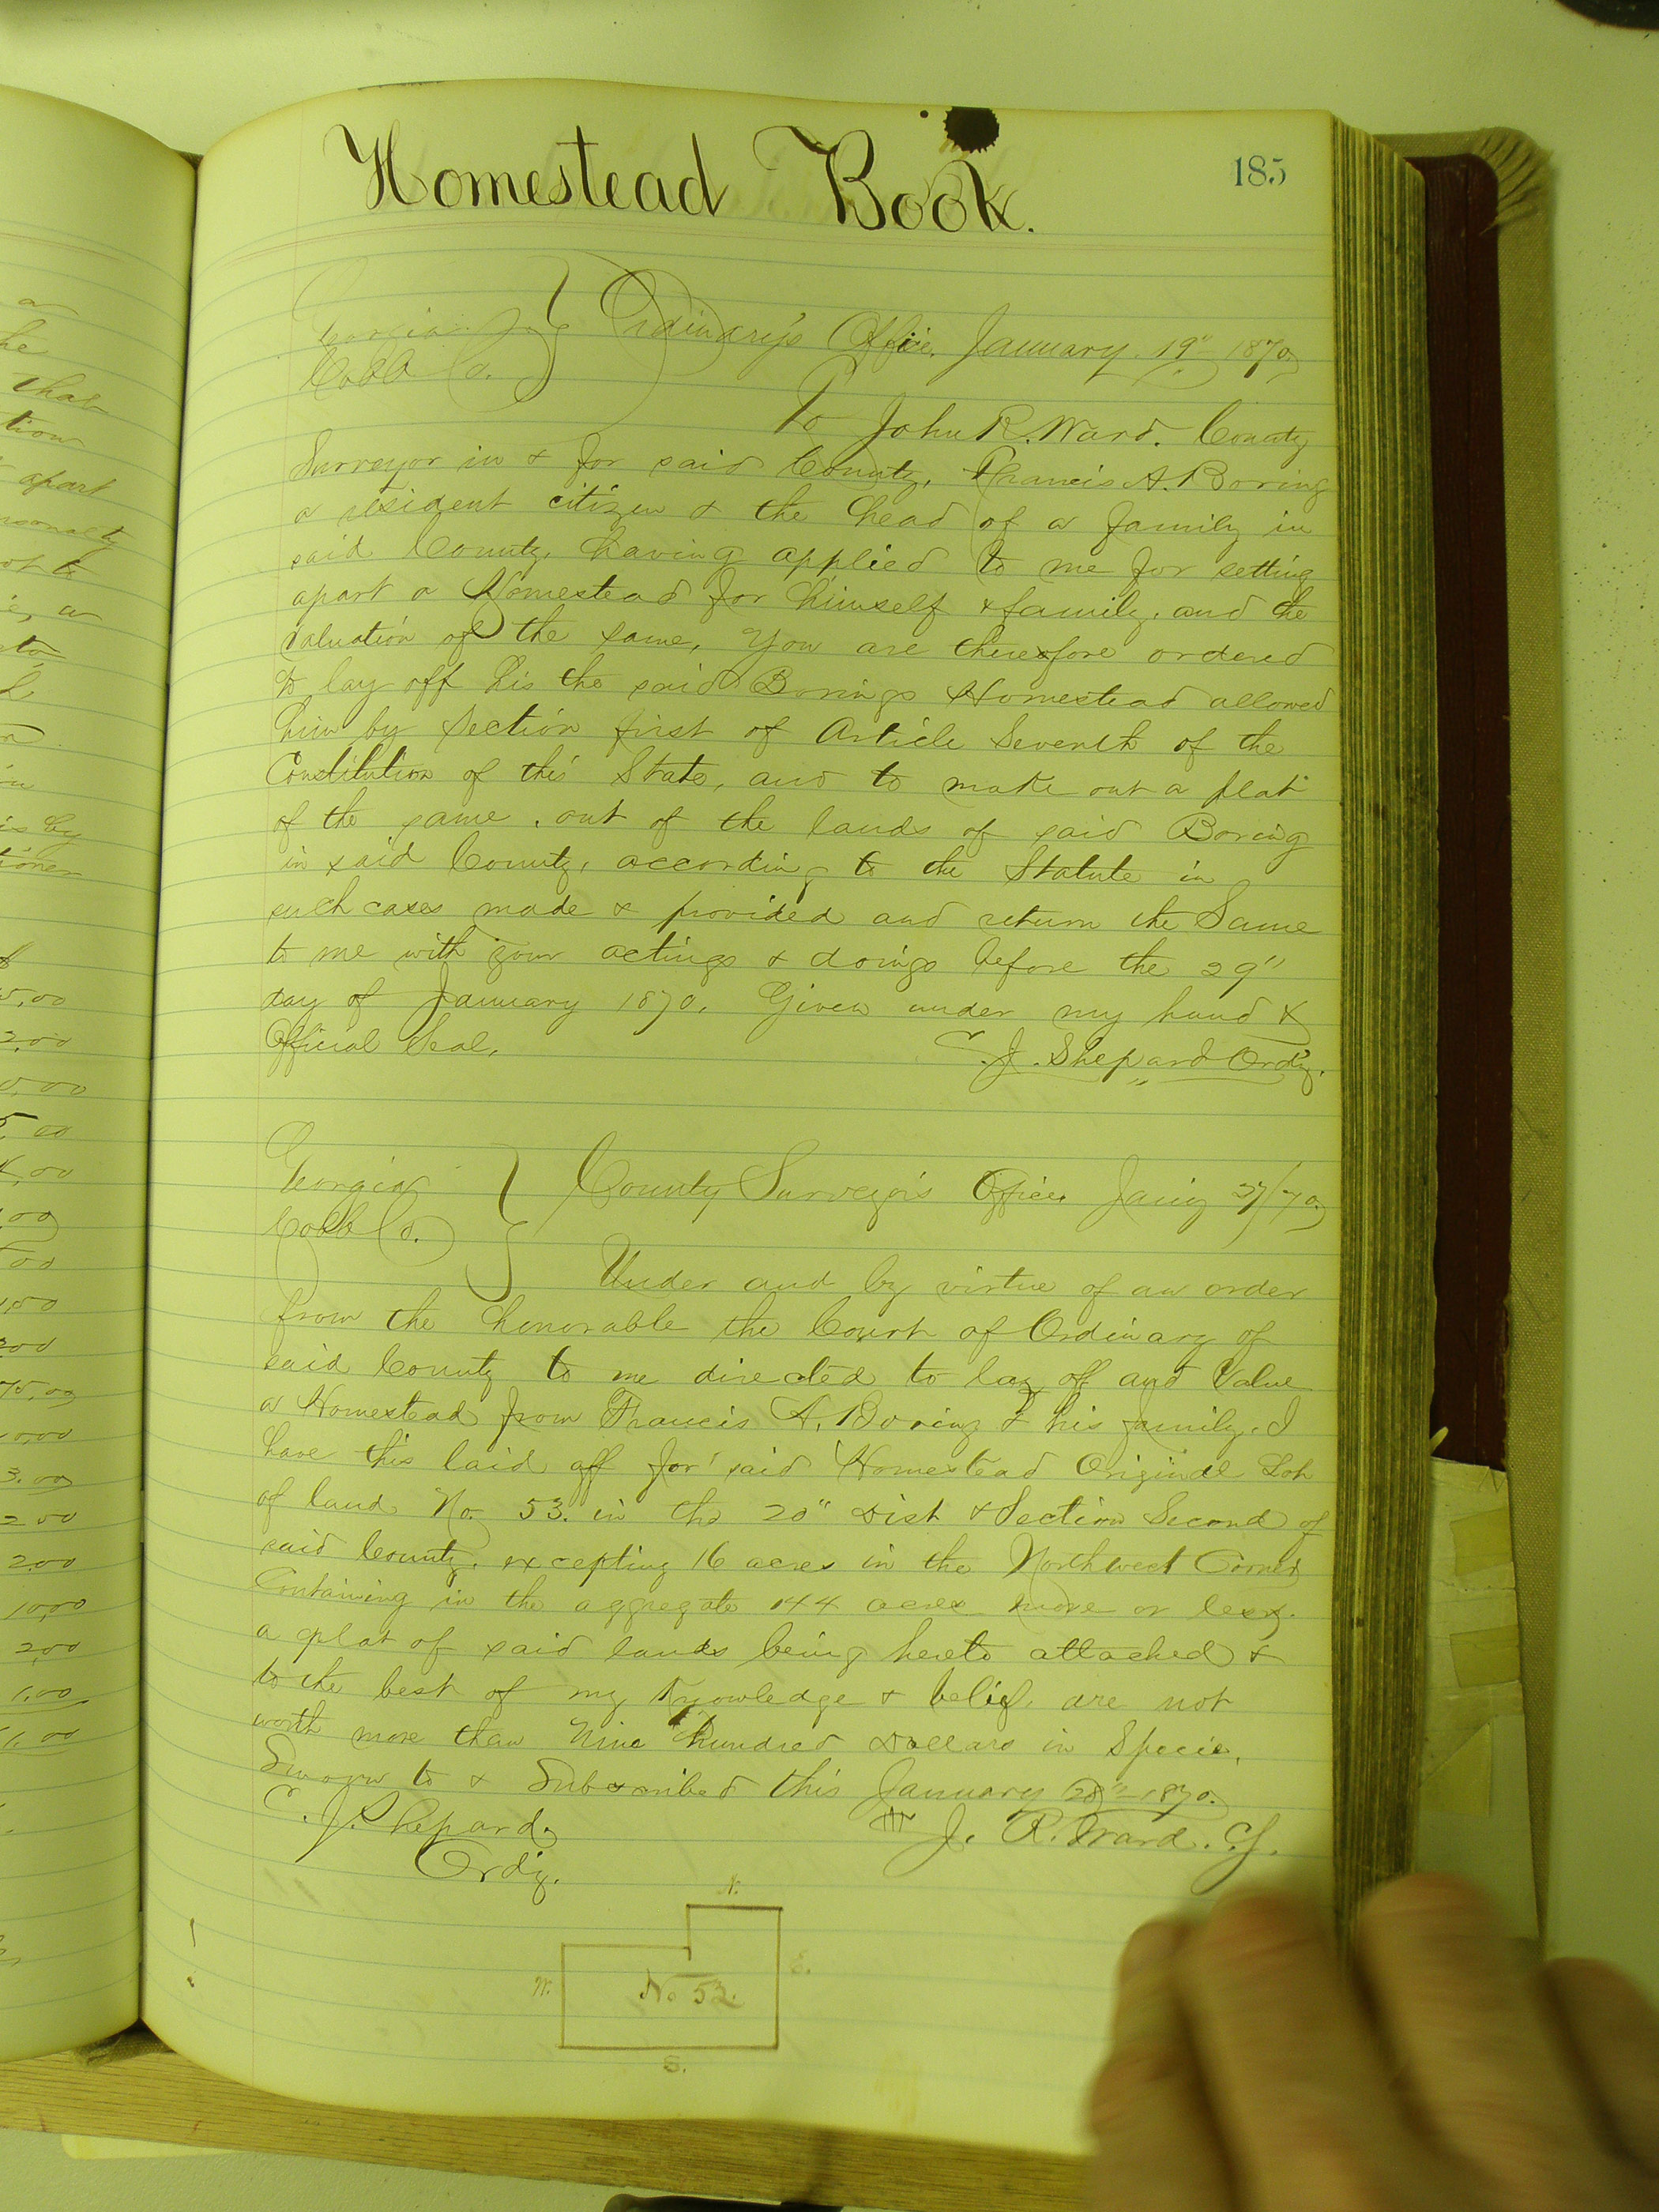 Homestead Book.
185
Georgia } Ordinary's Office, January 19" 1870
Cobb Co.
To John R. Ward. County
Surveyor in & for said County, Francis A. Boring
a resident citizen & the head of a family in
said County, having applied to me for setting
apart a Homestead for himself & family, and the
valuation of the same, You are therefore ordered
to lay off his the said Borings Homestead allowed
him by Section first of Article Seventh of the
Constitution of this State, and to make out a plat
of the same, out of the lands of said Boring
in said County, according to the Statute in
such cases made & provided and return the Same
to me with your actings & doings before the 29"
day of January 1870. Given under my hand &
Official Seal.
C. J. Shepard Ordy.
Georgia } County Surveyor's Office Jany 27/70
Cobb Co.
Under and by virtue of an order
from the honorable the Court of Ordinary of
said County to me directed to lay off and Value
a Homestead from Francis A. Boring & his family. I
have this laid off for said Homestead Original Lot
of land No. 53. in the 20" Dist & Section Second of
said County. excepting 16 acres in the Northwest Corner
Containing in the aggregate 144 acres more or less.
a plat of said lands being hereto attached &
to the best of my Knowledge & belief, are not
worth more than Nine Hundred Dollars in Specie,
Sworn to & Subscribed this January 28" 1870.
C. J. Shepard. J. R. Ward. C.S.
Ordy.
N.
W. No 53. E.
S.
a
he
that
tion
apart
is by
5,00
2,00
0,00
5,00
00
75,00
3.00
2 00
2.00
10,00
2,00
1,00